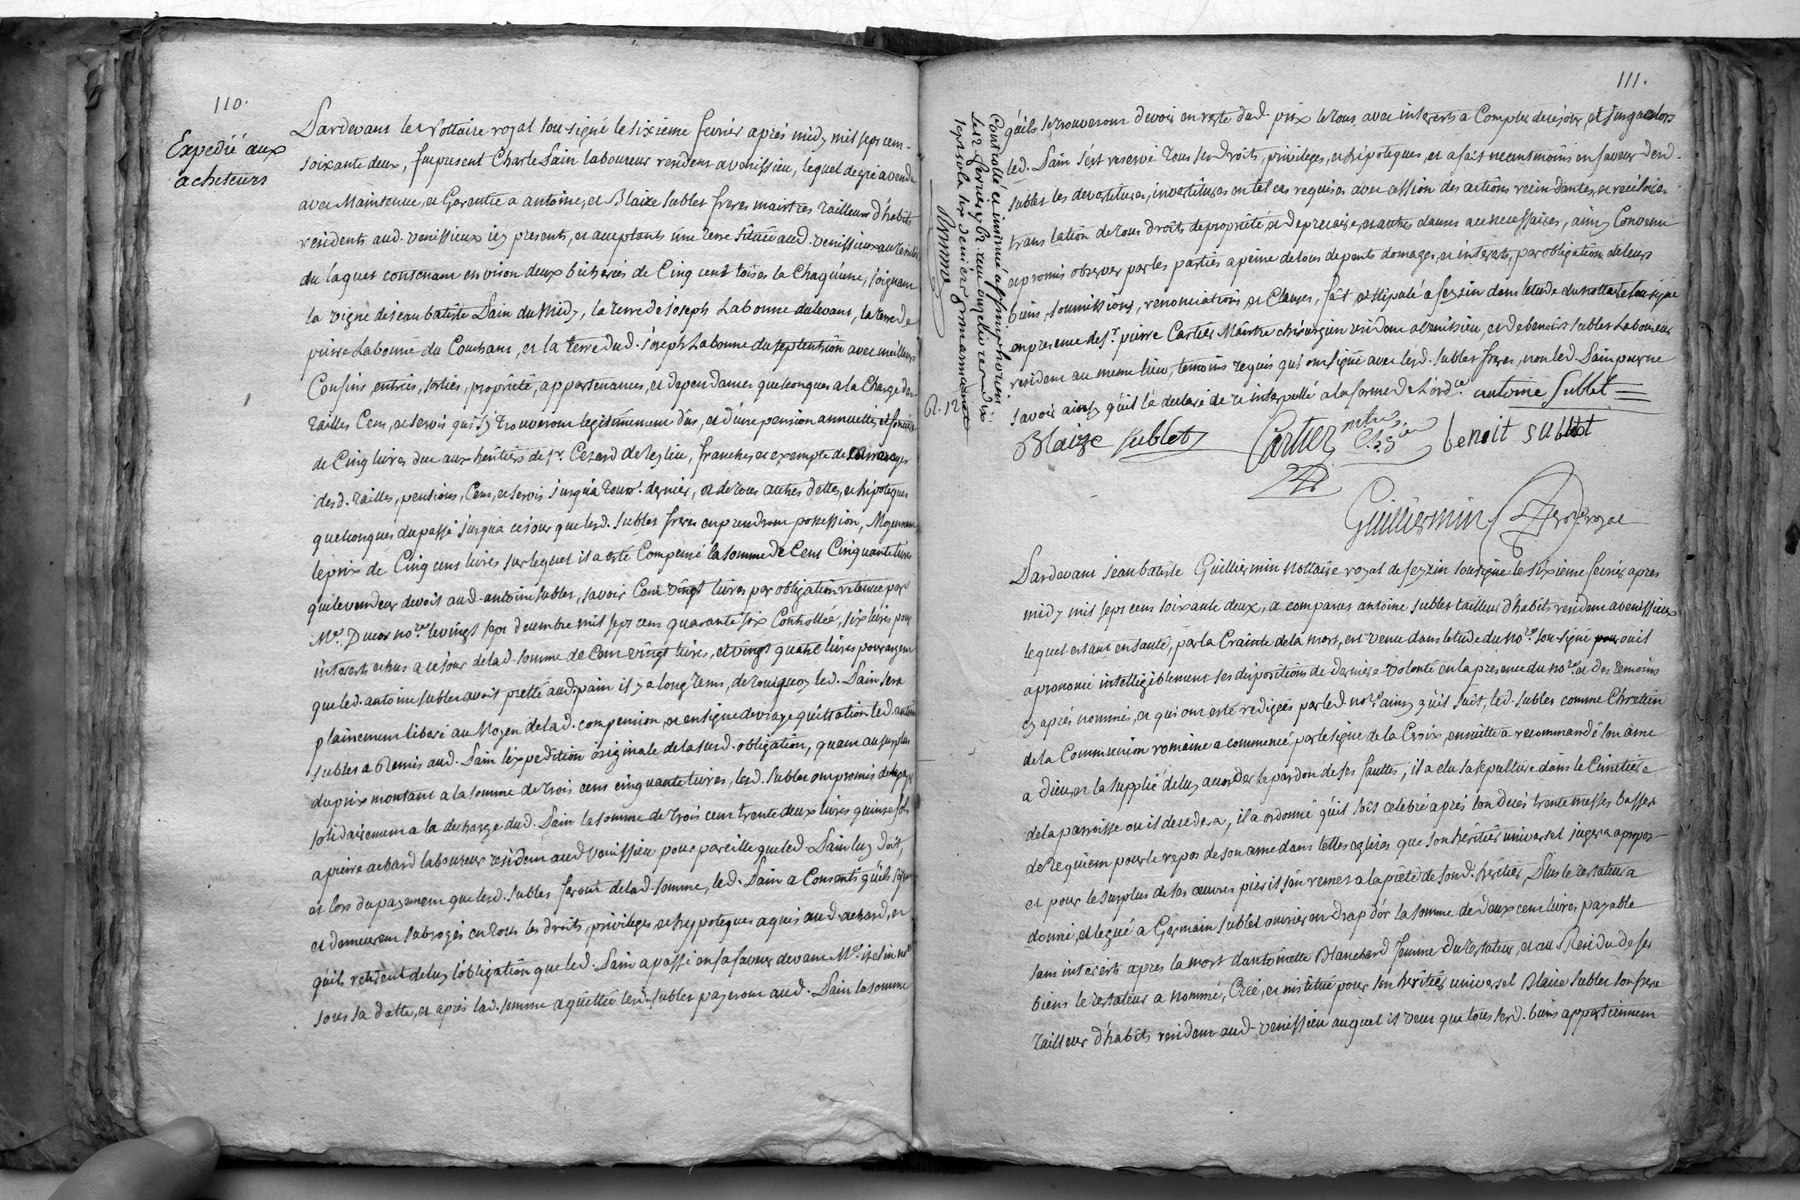 110.
Expedié aux
acheteurs
Pardevant le Nottaire royal sousigné le sixieme fevrier aprés midy mil sept cent
soixante deux, fut present Charle Pain laboureur resident a venissieu, lequel de gré a vendu
avec Maintenue, et Garentie a antoine, et Blaize sublet freres maistres tailleurs d'habits
residents aud. venissieux icy presents, et acceptants une terre située aud. venissieux au
du laquet contenant environ deux bicherées de Cinq cent toises la Chaquune, joignant
la vigne de jean batiste Pain du Midy, la terre de joseph Labonne du levant, la terre de
pierre Labonne du Couchant, et la terre dud. joseph Labonne du septentrion avec meilleurs
Confins, entrées, sorties, proprieté, appartenances, et dependances quelconques a la Charge des
tailles Cens, et servis qui s'y trouveront legitimement dus, et d'une pension annuelle, et fonciere
de Cinq livres due aux heritiers de sr. Cezard de leglise, franche, et exempte de arrerages
desd. tailles, pensions, Cens, et servis jusqu'a dernier, et de tous autres dettes, et hipoteques
quelconques du passé jusqu'a ce jour que lesd. sublet freres en prendront possession, Moyennant
le prix de Cinq cens livres sur lequel il a eté Compensé la somme de Cent Cinquante livres
que le vendeur devoit aud. antoine sublet, savoir Cent vingt livres par obligation retenue par
Me. Ducos nore. le vingt sept decembre mil sept cent quarante six Controllée, six livres pour
interests echus a ce jour de lad. somme de Cent vingt livres, et vingt quatre livres pour argent
que led. antoine sublet avoit pretté aud. pain il y a long tems, de tout quoy led. Pain sera
plainement liberé au Moyen de lad. compension, et en signe de vraye quittation led. antoine
sublet a Remis aud. Pain l'expedition originale de la susd. obligation, quant au surplus
du prix montant a la somme de trois cent cinquante livres, lesd. sublet ont promis de le payer
solidairement a la decharge dud. Pain la somme de trois cent trente deux livres quinze sols
a pierre achard laboureur resident aud. venissieu pour pareille que led. Pain luy doit,
et lors du payement que lesd. sublet feront de lad. somme, led. Pain a Consenti qu'ils soient
et demeurent subrogés en tous les droits, privileges, et hypoteques aquis aud. achard, et
qu'ils retirent de luy l'obligation que led. Pain a passé en sa faveur devant Me.
sous sa datte, et aprés lad. somme aquittée lesd. sublet payeront aud. Pain la somme
111.
qu'ils se trouveront devoir en reste dud. prix le tous avec interets a Compter de ce jour, et jusqu'alors
led. Pain s'est reservé tous ses droits, privileges, et hipoteques, et a fait neantmoins en faveur desd.
sublet les devestitures, investitures en tel cas requises avec cession des actions rescindantes, et rescisoires
translation de tous droits de proprieté, et de precaire, et autres clauses ace necessaires, ainsy Convenu
et promis observer par les parties a peine de tous depents domages, et interets, par obligation de leurs
biens, soumissions, renonciations, et Clauses, fait et stipulé a feyzin dans l'etude du nottaire sousigné
en presence de sr. pierre Cartier Maitre chirurgien resident a venissieu, et de benoit sublet Laboureur
resident au meme lieu, temoins requis qui ont signé avec lesd. sublet freres, non led. Pain pour ne
savoir ainsy qu'il la declaré de ce interpellé a la forme de l'ordce. antoine Sublet
Blaize sublet Cartier mtre chgien benoit sublet
Guilliermin nore royal
Controllé et insinué a
le 12 fevrier 1762 reçu onze livres dix
sept sols six deniers
R. 12
Pardevant jean batiste Guilliermin Nottaire royal de feyzin sousigné le sixieme fevrier aprés
midy mil sept cent soixante deux, a comparu antoine sublet tailleur d'habits resident a venissieux
lequel estant en santé, par la Crainte de la mort, est venu dans l'etude du nore. sousigné ou il
a prononcé intelligiblement ses dispositions de derniere volonté en la presence du nore. et des temoins
cy aprés nommés, et qui ont esté redigées par led. nore. ainsy qu'il suit, led. sublet comme Chretien
de la Communion romaine a commencé par le signe de la Croix, ensuitte a recommandé son ame
a dieu, et la supplié de luy accorder le pardon de ses fauttes, il a elu sa sepulture dans le Cimetiere
de la parroisse ou il decedera, il a ordonné qu'il soit celebré aprés son decés trente messes basses
de Requiem pour le repos de son ame dans telles eglises que son heritier universel jugera a propos
et pour le surplus de ses œuvres pies il s'en remet a la pieté de sond. heritier, Plus le testateur a
donné, et legué a Germain sublet ouvrier en drap d'or la somme de deux cent livres payable
sans interets aprés la mort d'antoinette Blanchard femme du testateur, et au Residu de ses
biens le testateur a nommé, Créé, et institué pour son heritier universel Blaise sublet son frere
tailleur d'habits resident aud. venissieu auquel il veut que tous sesd. biens appartiennent